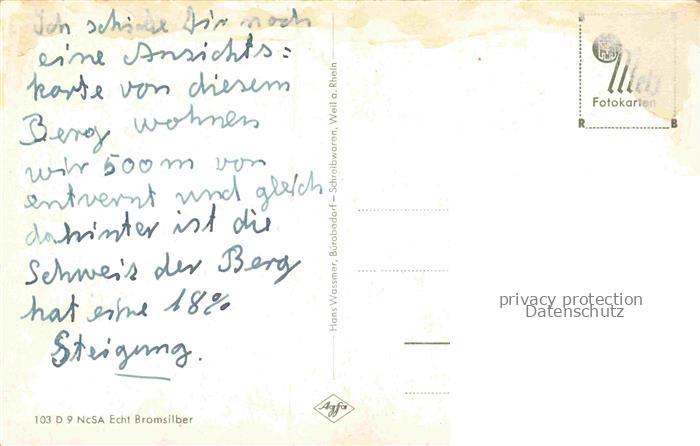 Ich schicke Dir noch
eine Ansichts=
karte von diesem
Berg wohnen
wir 500 m von
entvernt und gleich
dahinter ist die
Schweiz der Berg
hat eine 18%
Steigung.
103 D 9 NcSA Echt Bromsilber
Hans Wassmer, Bürobedarf – Schreibwaren, Weil a. Rhein
Agfa
Metz
Fotokarten
R B
privacy protection
Datenschutz